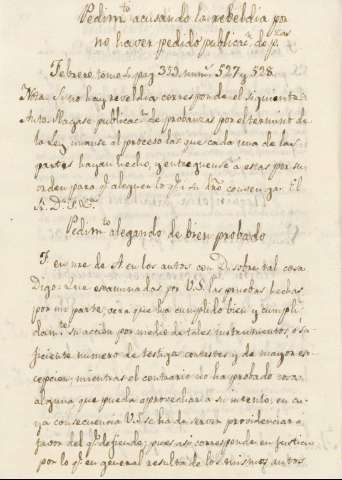 Pedim.to acusando la rebeldia por
no haver pedido publicac.n de p.zas
Febrero, tomo 2, pag 353 num.s 527 y 528.
Nota. Si no hay reveldia corresponde el siguiente
Auto. Hagase publicac.n de probanzas por el termino de
la Ley unanse al proceso las que cada una de las
partes hayan hecho, y entreguense a estas por su
orden para q.e aleguen lo q.e a su dro convenga. El
S. D.n &c.
Pedim.to alegando de bien probado
F. en nre de A en los autos con D. sobre tal cosa
Digo: Que examinadas por V.S. las pruebas hechas
por mi parte, vera que ha cumplido bien y cumpli-
dam.te su accion por medio de tales instrumentos, o su-
ficiente numero de testigos contestes y de mayor ex-
cepcion; mientras el contrario no ha probado cosa
alguna que pueda aprovechar a su intento, en cu-
ya consecuencia V.S. se ha de servir providenciar a
favor del q.e defiendo; pues asi corresponde en justicia
por lo q.e en general resulta de los mismos autos